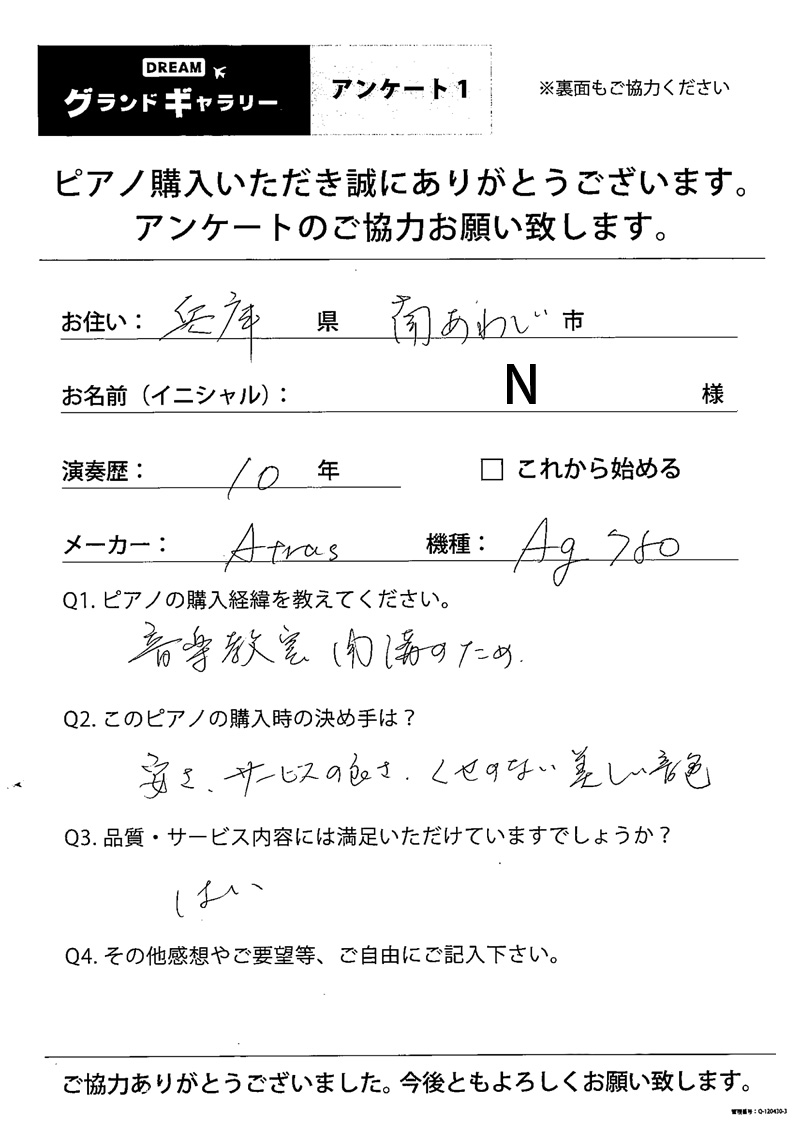 DREAM
グランドギャラリー
アンケート1
※裏面もご協力ください
ピアノ購入いただき誠にありがとうございます。
アンケートのご協力お願い致します。
お住い： 兵庫 県 南あわじ 市
お名前（イニシャル）： N 様
演奏歴： 10 年 □ これから始める
メーカー： Atras 機種： Ag 780
Q1. ピアノの購入経緯を教えてください。
音楽教室開講のため.
Q2. このピアノの購入時の決め手は？
安さ、サービスの良さ. くせのない美しい音色
Q3. 品質・サービス内容には満足いただけていますでしょうか？
はい
Q4. その他感想やご要望等、ご自由にご記入下さい。
ご協力ありがとうございました。今後ともよろしくお願い致します。
管理番号：Q-120430-3